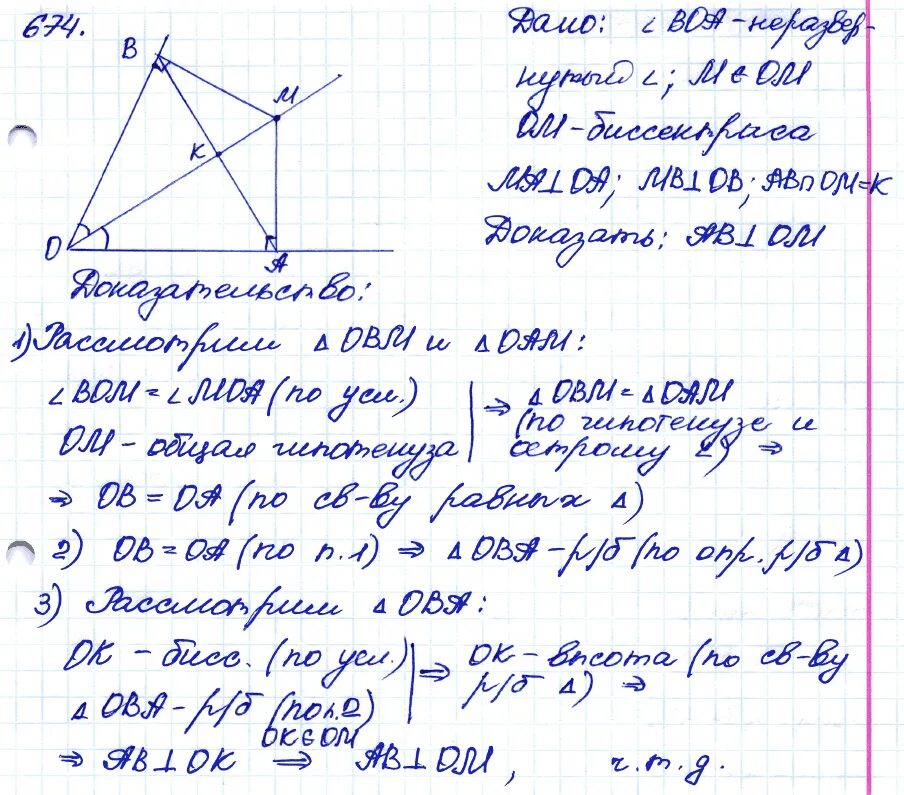 674.
Дано: ∠BOA – неразвер-
нутый ∠; M ∈ OM
OM – биссектриса
MA⊥OA; MB⊥OB; AB∩OM=K
Доказать: AB⊥OM
B
M
K
O
A
Доказательство:
1) Рассмотрим △OBM и △OAM:
∠BOM = ∠MOA (по усл.)
OM – общая гипотенуза
⇒ △OBM = △OAM
(по гипотенузе и
острому ∠) ⇒
⇒ OB = OA (по св-ву равных △)
2) OB = OA (по п.1) ⇒ △OBA – р/б (по опр. р/б △)
3) Рассмотрим △OBA:
OK – бисс. (по усл.)
△OBA – р/б (по п.2)
⇒ OK – высота (по св-ву
р/б △) ⇒
OK∈OM
⇒ AB⊥OK ⇒ AB⊥OM, ч.т.д.